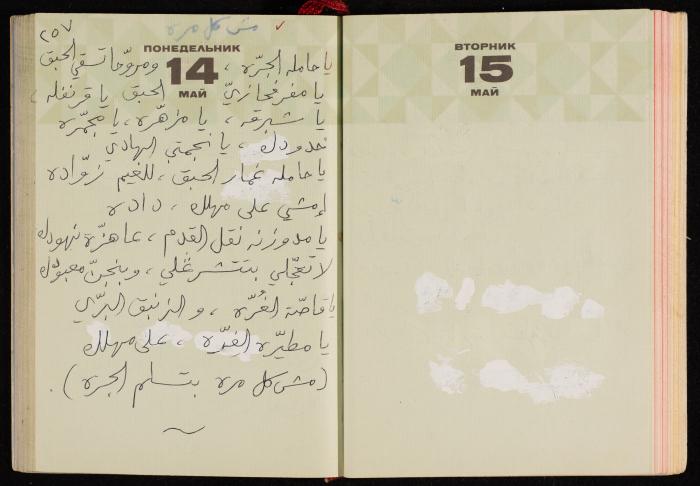 ٢٥٧
مش كل مره
ПОНЕДЕЛЬНИК
14
МАЙ
ВТОРНИК
15
МАЙ
يا حامله الجرّه ، ومروّحا تسقي الحبق
يا مفرفحا زيّ الحبق يا قرنفله ،
يا شبرقه ، يا مزهّره ، يا مجمّره
خدودك ، يا نجمتي الهادي
يا حامله غمار الحبق ، للغيم زوّاده
إمشي على مهلك ، دادره
يا مدوزنه نقل القدم ، عا هزّة نهودك
لا تعجّلي بتتشرغلي ، وبنجنّ معبودك
يا قاصّة الغُرّه ، والزنبق البرّي
يا مطيّره الغرّه ، على مهلك
(مش كل مره بتسلم الجره).